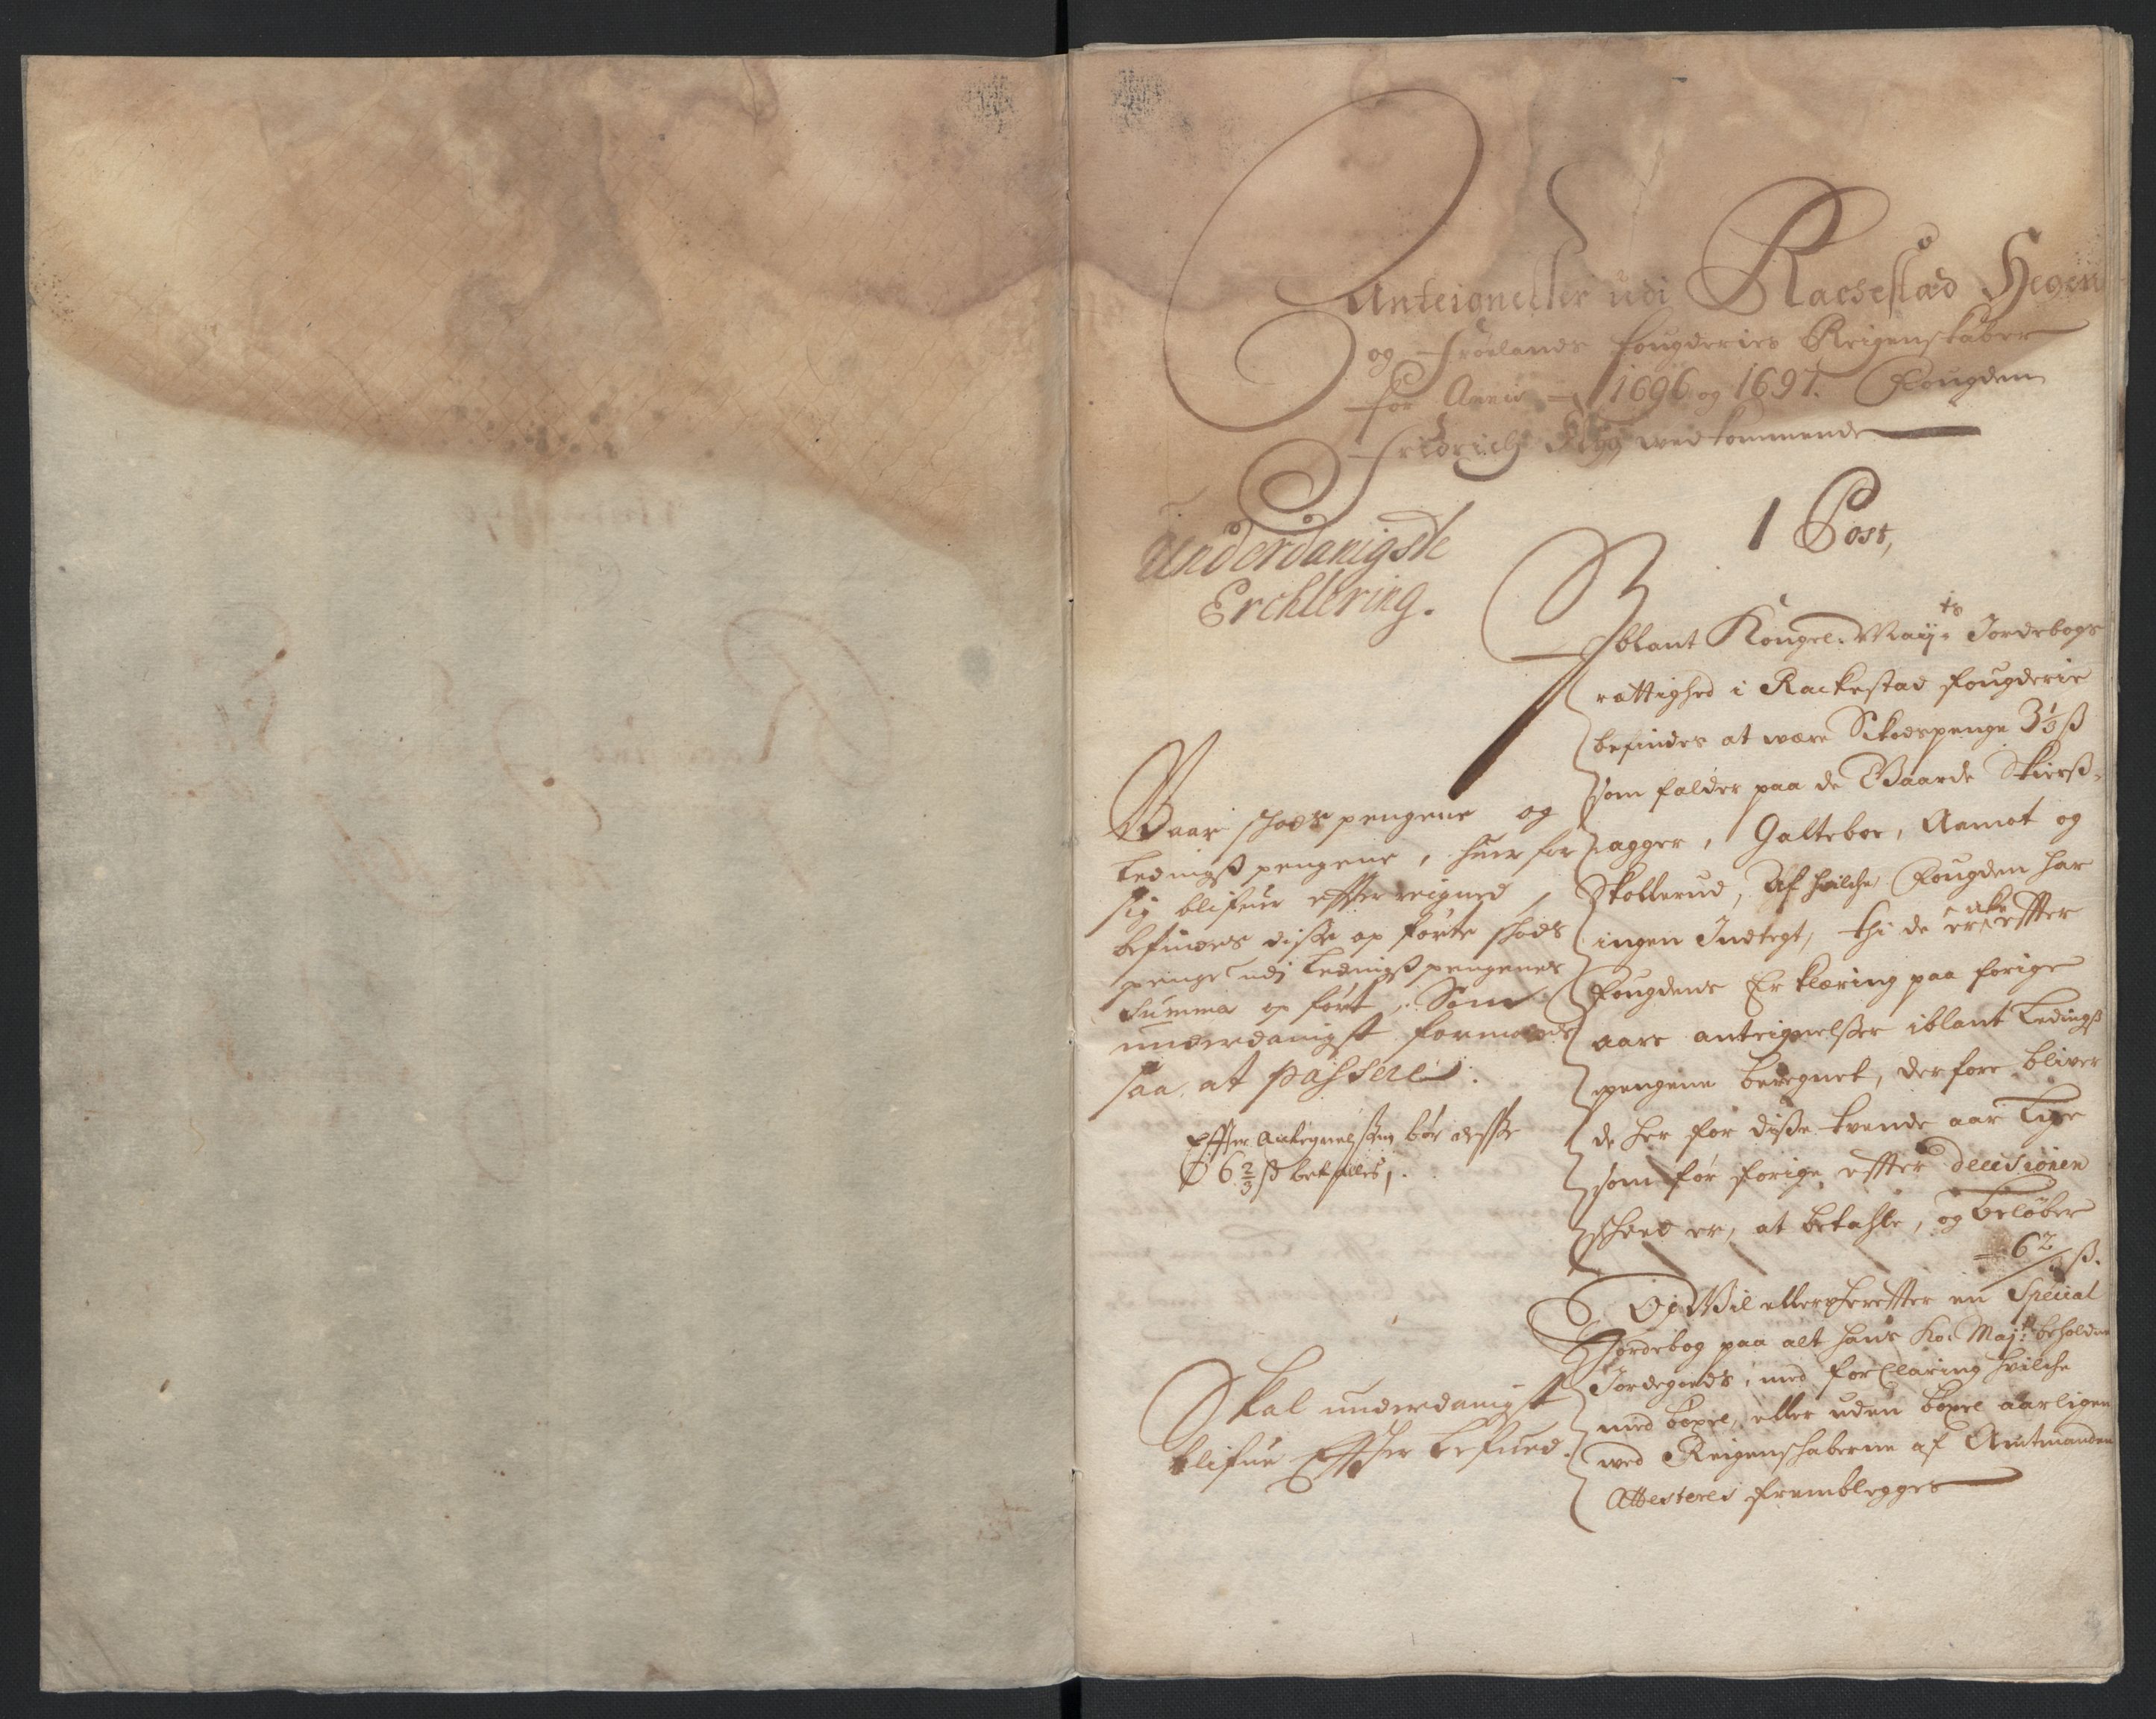 Anteignelser udi Rachestad Hegen
og Frølands fougderies Reigenskaber
for Anno 1696 og 1697. Fougden
Fridrich wedkommende
1 Post,
Underdanigste
Erchlering.
Iblant Kongel: Maij:ts Jordebogs
rættighed i Rackestad fougderie
befindes at være Skodspenge 3 1/3 ß
som falder paa de Gaarde Skierß-
agger, Galteboe, Aamot og
Skollerud, Af hvilche Fougden har
ingen Indtegt, thi de er icke effter
Fougdens Erklæring paa forige
aars anteignelser iblant Ledings
pengene beregnet, derfore bliver
de her for disse tvende aar lige
som for forige effter decisionen
scheed er, at betahle, og beløber
6 2/3 ß.
Og Wil ellers hereffter en Special
Jordebog paa alt hans Ko: Maj:ts beholdne
Jordegods, med forclaring hvilche
med bøxel, eller uden bøxel aarligen
ved Reigenschaberne af Amtmanden
Attesteres fremblegges
Naar schodspengene og
Ledingspengene, huer for
sig blifuer effterreigned,
befindes disse op førte schods
penge udi Ledingspengenes
Summa opført, Som
underdanigst formodes
saa at passere.
Effter Antegnelsen bør disse
6 2/3 ß betales,
Skal underdanigst
blifue Effterlefued.